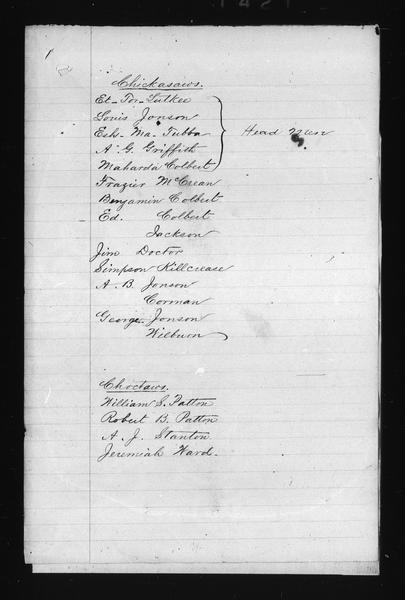 Chickasaws.
Et-Tor-Lutkee
Louis Jonson
Esh-Ma-Tubba Head Men
A. G. Griffith
Maharda Colbert
Frazier McCrean
Benjamin Colbert
Ed. Colbert
Jackson
Jim Doctor
Simpson Killcrease
A. B. Jonson
Corman
George Jonson
Wilburn
Choctaws.
William S. Patton
Robert B. Patton
A. J. Stanton
Jeremiah Ward.